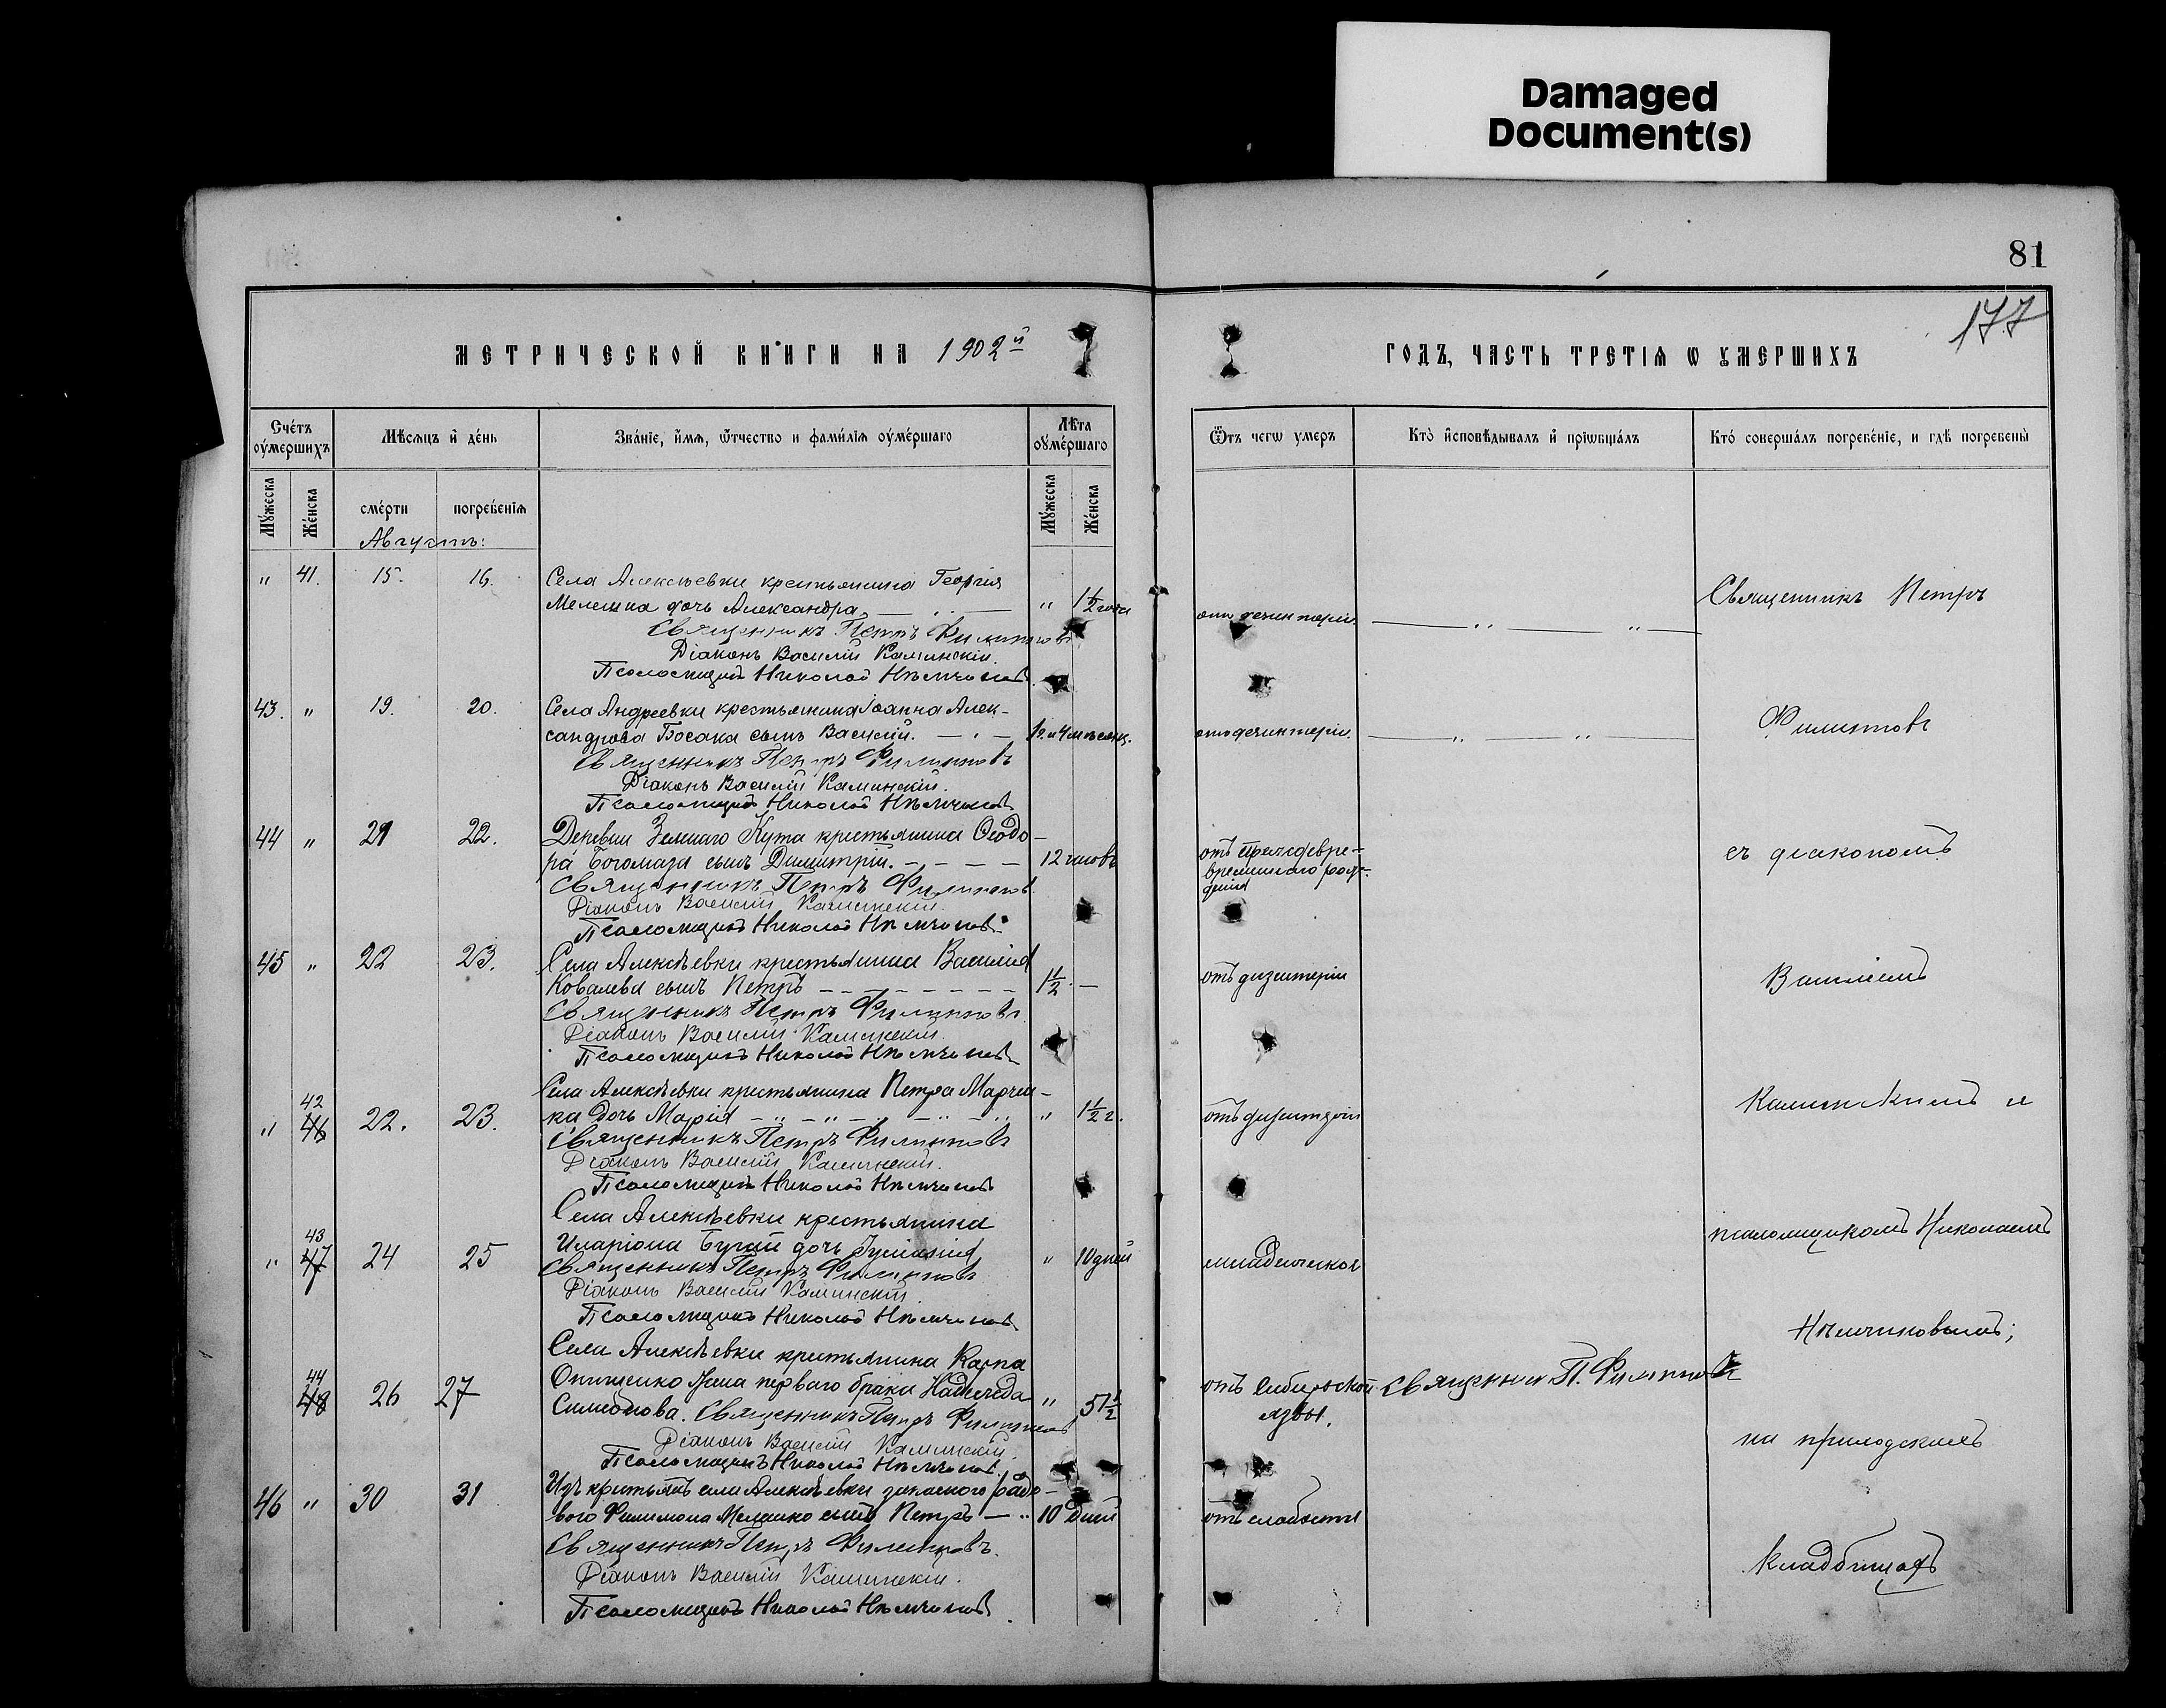 Damaged
Document(s)
81
177
МЕТРИЧЕСКОЙ КНИГИ НА 1902й
ГОДЪ, ЧАСТЬ ТРЕТІЯ Ѡ ОУМЕРШИХЪ
Счетъ оумершихъ
Мѣсяцъ и день
Званіе, имя, ѿчество и фамилія оумершаго
Лѣта оумершаго
Мужеска
Женска
смерти
погребенія
Мужеска
Женска
Августъ:
„ 41. 15. 16. Села Алексѣевки крестьянина Георгія
Мелешка дочь Александра „ 1½ года
Священникъ Петръ Филипповъ
Діаконъ Василій Каминскій.
Псаломщикъ Николай Нѣмчиновъ
43. „ 19. 20. Села Андреевки крестьянина Іоанна Алек-
сандрова Босака сынъ Василій. 1 г. и 4 мѣсяц.
Священникъ Петръ Филипповъ
Діаконъ Василій Каминскій.
Псаломщикъ Николай Нѣмчиновъ
44 „ 21 22. Деревни Кута крестьянина Ѳеодо-
ра Богомаза сынъ Димитрій. 12 часовъ
Священникъ Петръ Филипповъ
Діаконъ Василій Каминскій.
Псаломщикъ Николай Нѣмчиновъ
45 „ 22 23. Села Алексѣевки крестьянина Василія
Ковалева сынъ Петръ 1½
Священникъ Петръ Филипповъ
Діаконъ Василій Каминскій.
Псаломщикъ Николай Нѣмчиновъ
42
„ 46 22. 23. Села Алексѣевки крестьянина Петра Марчен-
ка дочь Марія „ 1½ г.
Священникъ Петръ Филипповъ
Діаконъ Василій Каминскій.
Псаломщикъ Николай Нѣмчиновъ
43
„ 47 24 25 Села Алексѣевки крестьянина
Иларіона дочь „ 10 дней
Священникъ Петръ Филипповъ
Діаконъ Василій Каминскій
Псаломщикъ Николай Нѣмчиновъ
44
48 26 27 Села Алексѣевки крестьянина Карпа
Онищенко жена перваго брака Надежда
Симеонова. Священникъ Петръ Филипповъ „ 51½
Діаконъ Василій Каминскій.
Псаломщикъ Николай Нѣмчиновъ
46 „ 30 31 Изъ крестьянъ села Алексѣевки запаснаго рядо-
вого Филимона Мелешко сынъ Петръ 10 дней
Священникъ Петръ Филипповъ.
Діаконъ Василій Каминскій.
Псаломщикъ Николай Нѣмчиновъ
Ѿтъ чегѡ умеръ
Кто исповѣдывалъ и пріѡбщалъ
Кто совершалъ погребеніе, и гдѣ погребены
отъ дезинтеріи
отъ дезинтеріи.
отъ преждевре-
временнаго рож-
денія
отъ дизентеріи
отъ дизентеріи
младенческой
отъ Сибирской
язвы.
отъ слабости
Священник П. Филиппов
Священникъ Петръ
Филипповъ
съ діакономъ
Василіемъ
Каминскимъ и
псаломщикомъ Николаемъ
Нѣмчиновымъ;
на приходскихъ
кладбищахъ